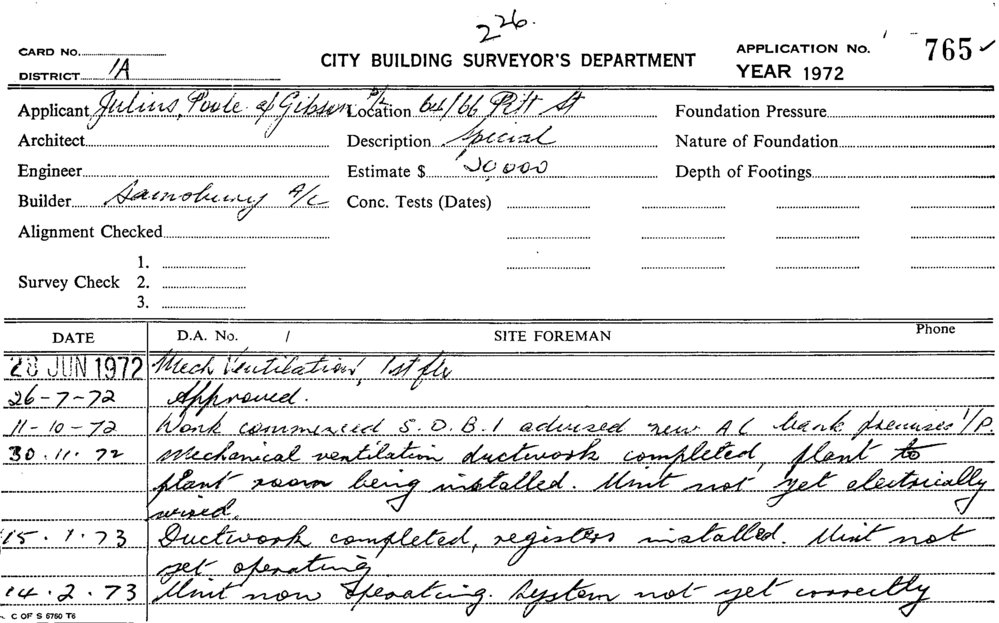 226.
CARD No. CITY BUILDING SURVEYOR'S DEPARTMENT APPLICATION No. 765 ✓
DISTRICT 1A YEAR 1972
Applicant Julius, Poole & Gibson P/L Location 64/66 Pitt St Foundation Pressure
Architect Description Special Nature of Foundation
Engineer Estimate $ 20,000 Depth of Footings
Builder Sainsbury A/C Conc. Tests (Dates)
Alignment Checked
1.
Survey Check 2.
3.
DATE D.A. No. / SITE FOREMAN Phone
28 JUN 1972 Mech Ventilation, 1st flr
26-7-72 Approved.
11-10-72 Work commenced S.O.B.1 advised new AC bank premises 1/P.
30.11.72 Mechanical ventilation ductwork completed, plant to
plant room being installed. Unit not yet electrically
wired.
15.1.73 Ductwork completed, registers installed. Unit not
yet operating
14.2.73 Unit now operating. System not yet correctly
C OF S 5750 T6